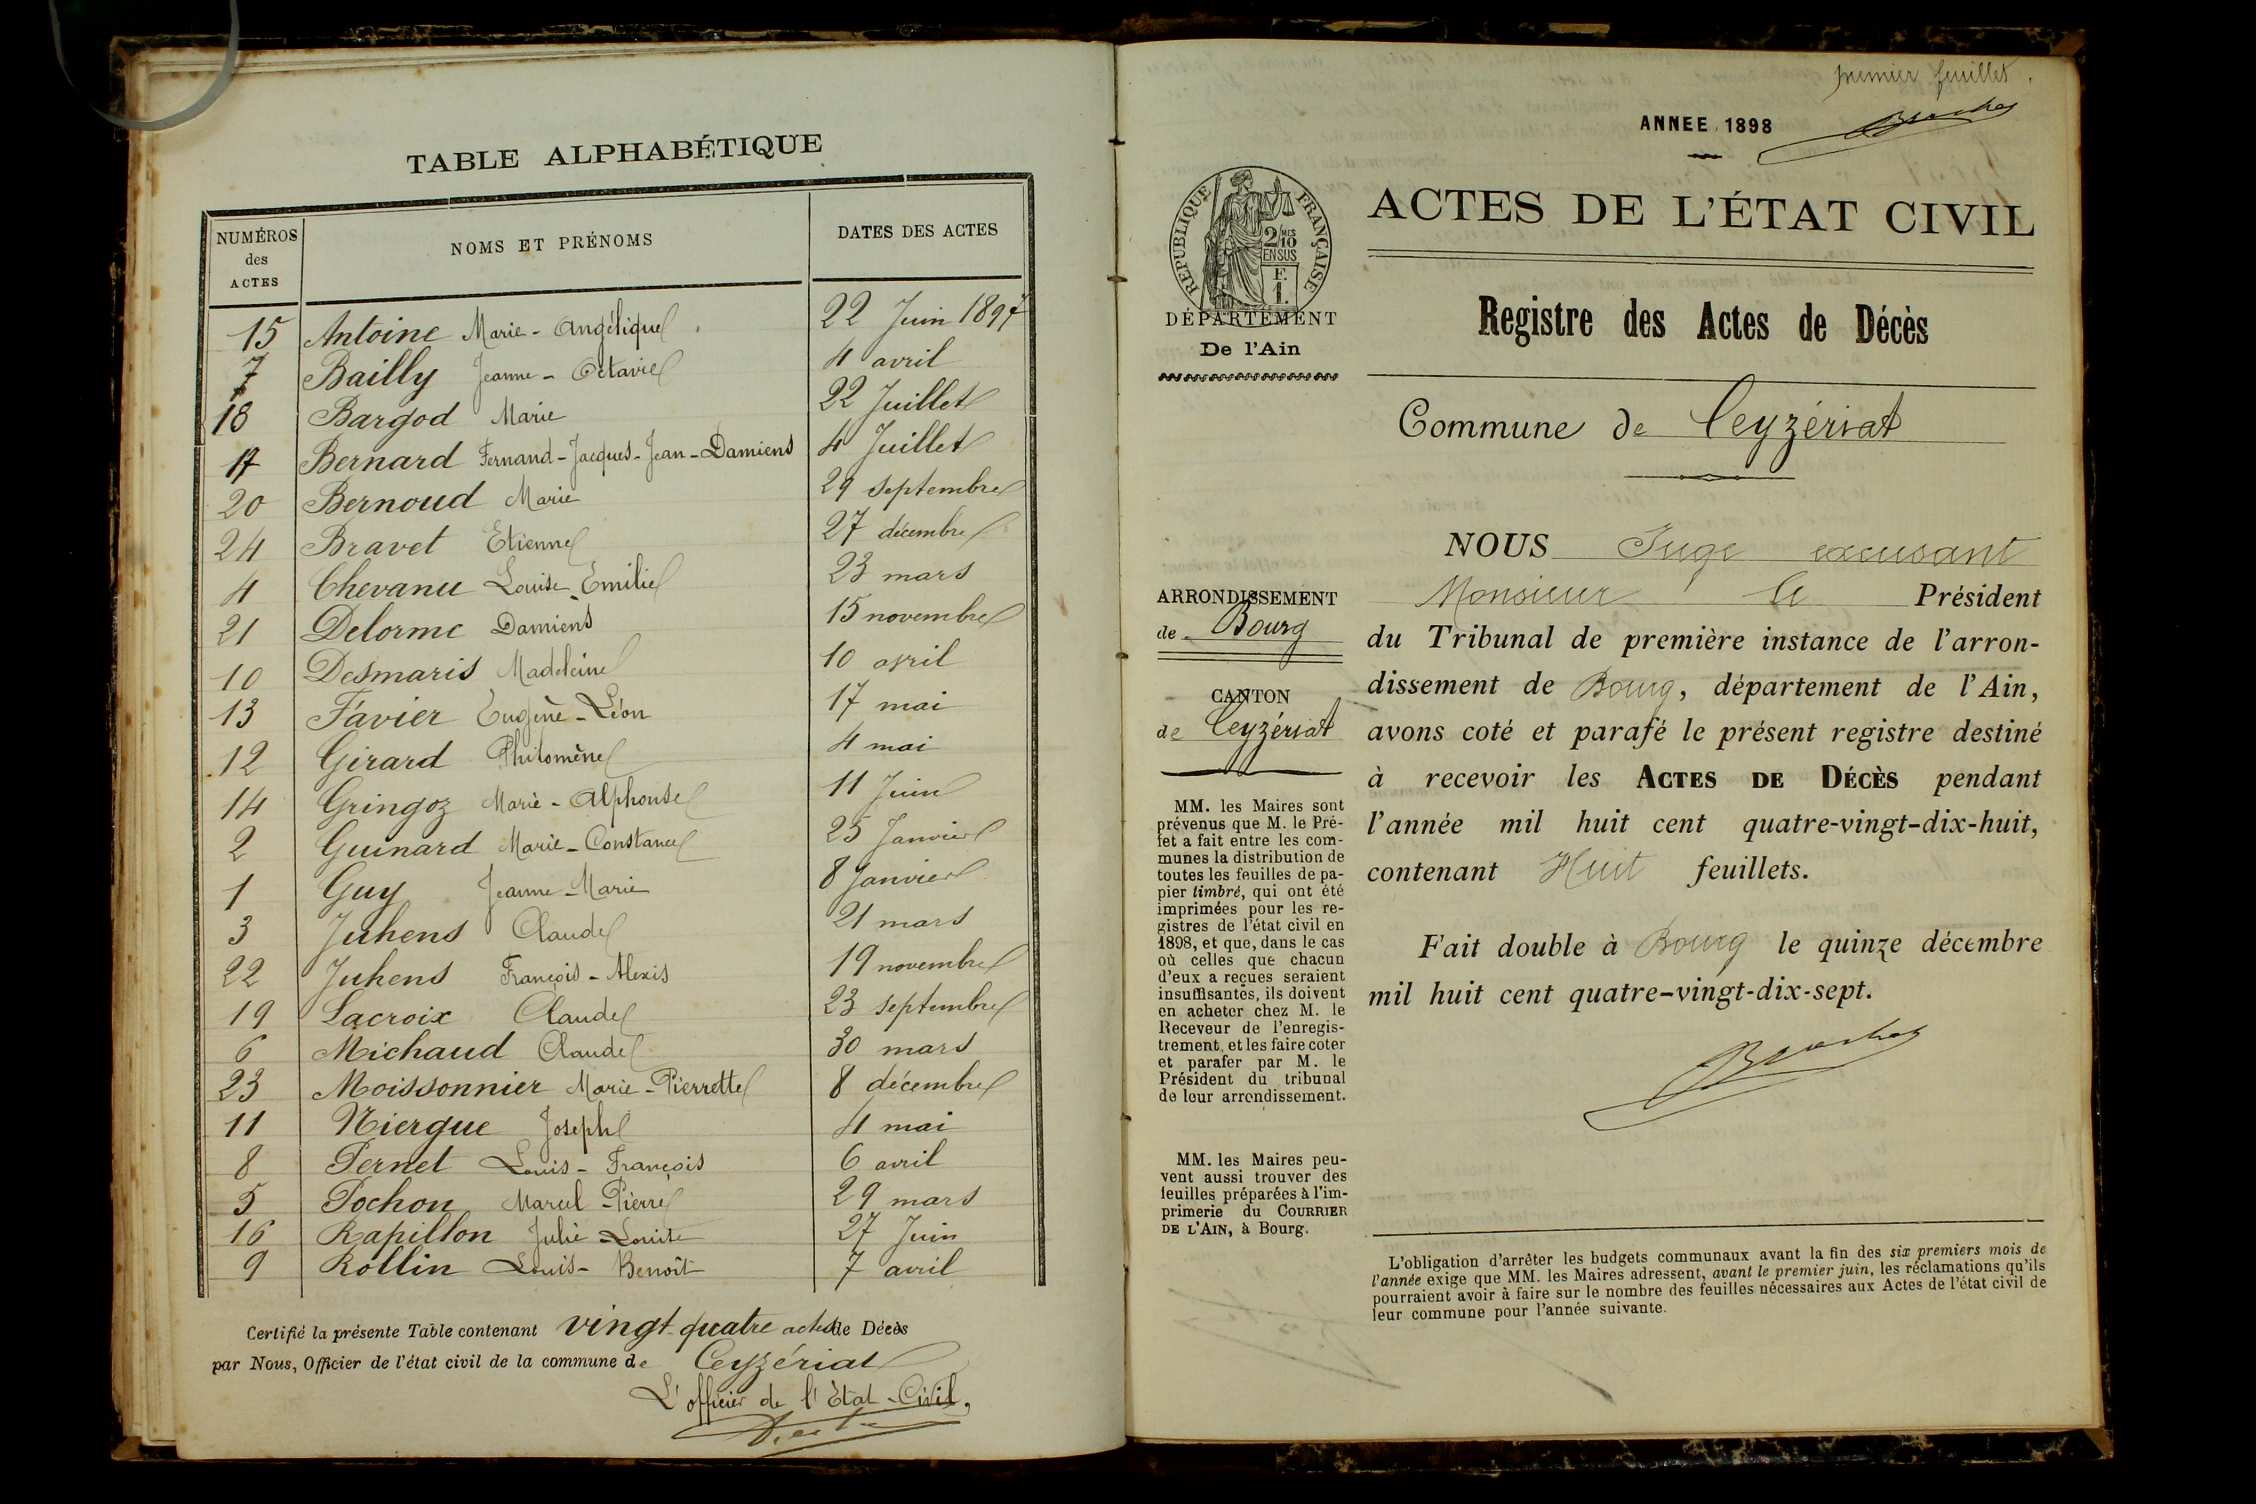 TABLE ALPHABÉTIQUE
NUMÉROS des ACTES NOMS ET PRÉNOMS DATES DES ACTES
15 Antoine Marie-Angélique 22 Juin 1897
7 Bailly Jeanne-Octavie 4 avril
18 Bargod Marie 22 Juillet
17 Bernard Fernand-Jacques-Jean-Damiens 4 Juillet
20 Bernoud Marie 29 septembre
24 Bravet Etienne 27 décembre
4 Chevanu Louise-Emilie 23 mars
21 Delorme Damiens 15 novembre
10 Desmaris Madeleine 10 avril
13 Favier Eugène-Léon 17 mai
12 Girard Philomène 4 mai
14 Gringoz Marie-Alphonse 11 Juin
2 Guinard Marie-Constance 25 Janvier
1 Guy Jeanne-Marie 8 Janvier
3 Juhens Claude 21 mars
22 Juhens François-Alexis 19 novembre
19 Lacroix Claude 23 septembre
6 Michaud Claude 30 mars
23 Moissonnier Marie-Pierrette 8 décembre
11 Niergue Joseph 4 mai
8 Pernet Louis-François 6 avril
5 Pochon Marcel-Pierre 29 mars
16 Rapillon Julie-Louise 27 Juin
9 Rollin Louis-Benoît 7 avril
Certifié la présente Table contenant vingt-quatre actes de Décès
par Nous, Officier de l'état civil de la commune de Ceyzériat
L'officier de l'Etat-Civil,
premier feuillet.
ANNEE 1898
RÉPUBLIQUE FRANÇAISE
2/10 MES
EN SUS
F.
1.
DÉPARTEMENT
De l'Ain
ACTES DE L'ÉTAT CIVIL
Registre des Actes de Décès
Commune de Ceyzériat
ARRONDISSEMENT
de Bourg
CANTON
de Ceyzériat
MM. les Maires sont
prévenus que M. le Pré-
fet a fait entre les com-
munes la distribution de
toutes les feuilles de pa-
pier timbré, qui ont été
imprimées pour les re-
gistres de l'état civil en
1898, et que, dans le cas
où celles que chacun
d'eux a reçues seraient
insuffisantes, ils doivent
en acheter chez M. le
Receveur de l'enregis-
trement, et les faire coter
et parafer par M. le
Président du tribunal
de leur arrondissement.
MM. les Maires peu-
vent aussi trouver des
feuilles préparées à l'im-
primerie du COURRIER
DE L'AIN, à Bourg.
NOUS Juge excusant
Monsieur le Président
du Tribunal de première instance de l'arron-
dissement de Bourg, département de l'Ain,
avons coté et parafé le présent registre destiné
à recevoir les ACTES DE DÉCÈS pendant
l'année mil huit cent quatre-vingt-dix-huit,
contenant Huit feuillets.
Fait double à Bourg le quinze décembre
mil huit cent quatre-vingt-dix-sept.
L'obligation d'arrêter les budgets communaux avant la fin des six premiers mois de
l'année exige que MM. les Maires adressent, avant le premier juin, les réclamations qu'ils
pourraient avoir à faire sur le nombre des feuilles nécessaires aux Actes de l'état civil de
leur commune pour l'année suivante.